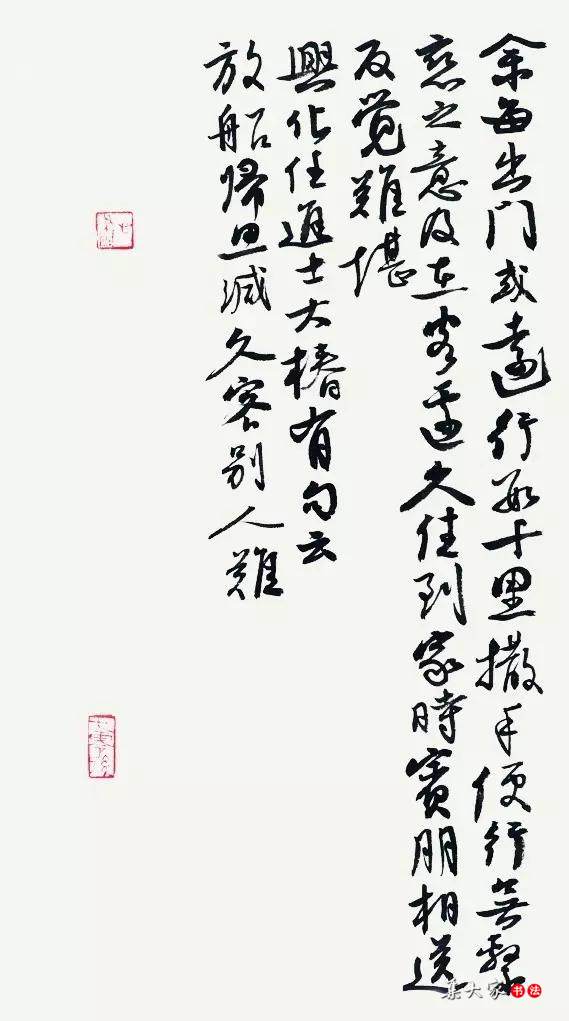 余每出门或远行数十里撒手便行无系
恋之意及在客边久住到家时宾朋相送
反觉难堪
興化任進士大椿有句云
放船歸思減久客別人難
集大家书法